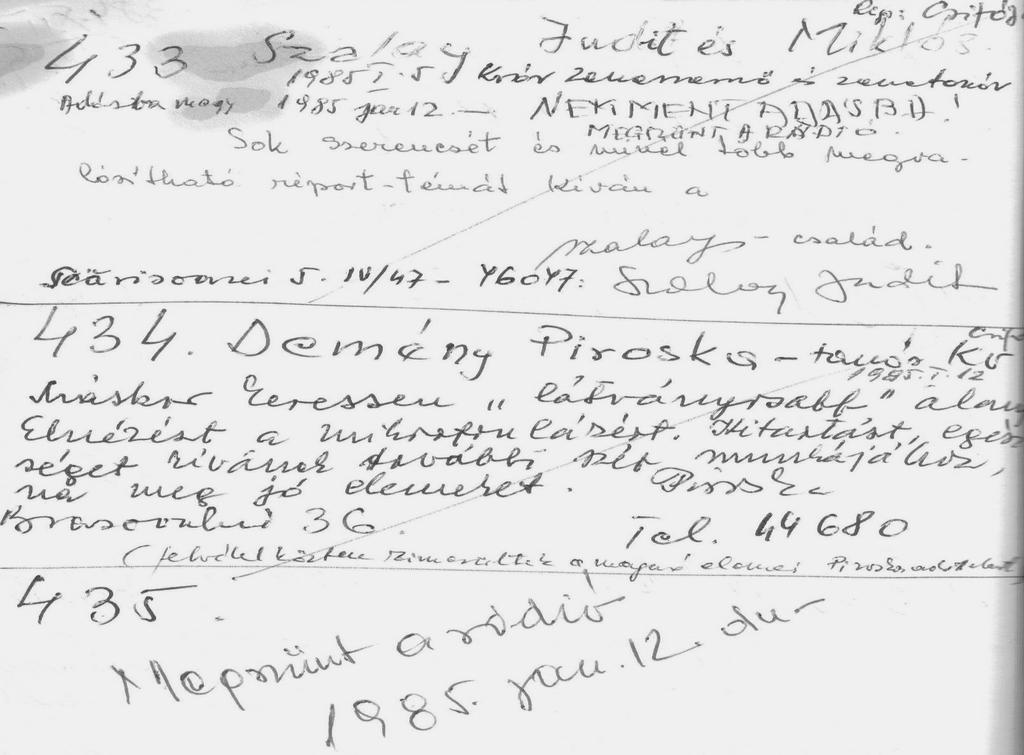 Rip: Csifó
433 Szalay Judit és Miklós.
1985 I. 5 Kvár zeneszerző és zenetanár
Adásba megy 1985 jan 12. — NEM MENT ADÁSBA!
MEGSZÜNT A RÁDIÓ.
Sok szerencsét és minél több megva-
lósítható riport-témát kíván a
szalay - család.
5. IV/47 - 46047: Szalay Judit
434. Demény Piroska - tanár Kv
1985. I. 12
Máskor keressen "látványosabb" alany
Elnézést a mikrofonlázért. Kitartást, egész
séget kívánok további szép munkájához,
na meg jó elemeket. Piroska
Brasovului 36. Tel. 44680
(felvétel közben kimerültek a magnó elemei Piroska adott
435.
Megszünt a rádió
1985. jan. 12. du-